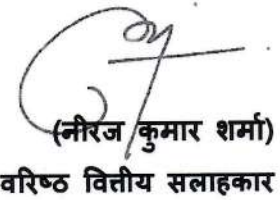 (नीरज कुमार शर्मा)
वरिष्ठ वित्तीय सलाहकार